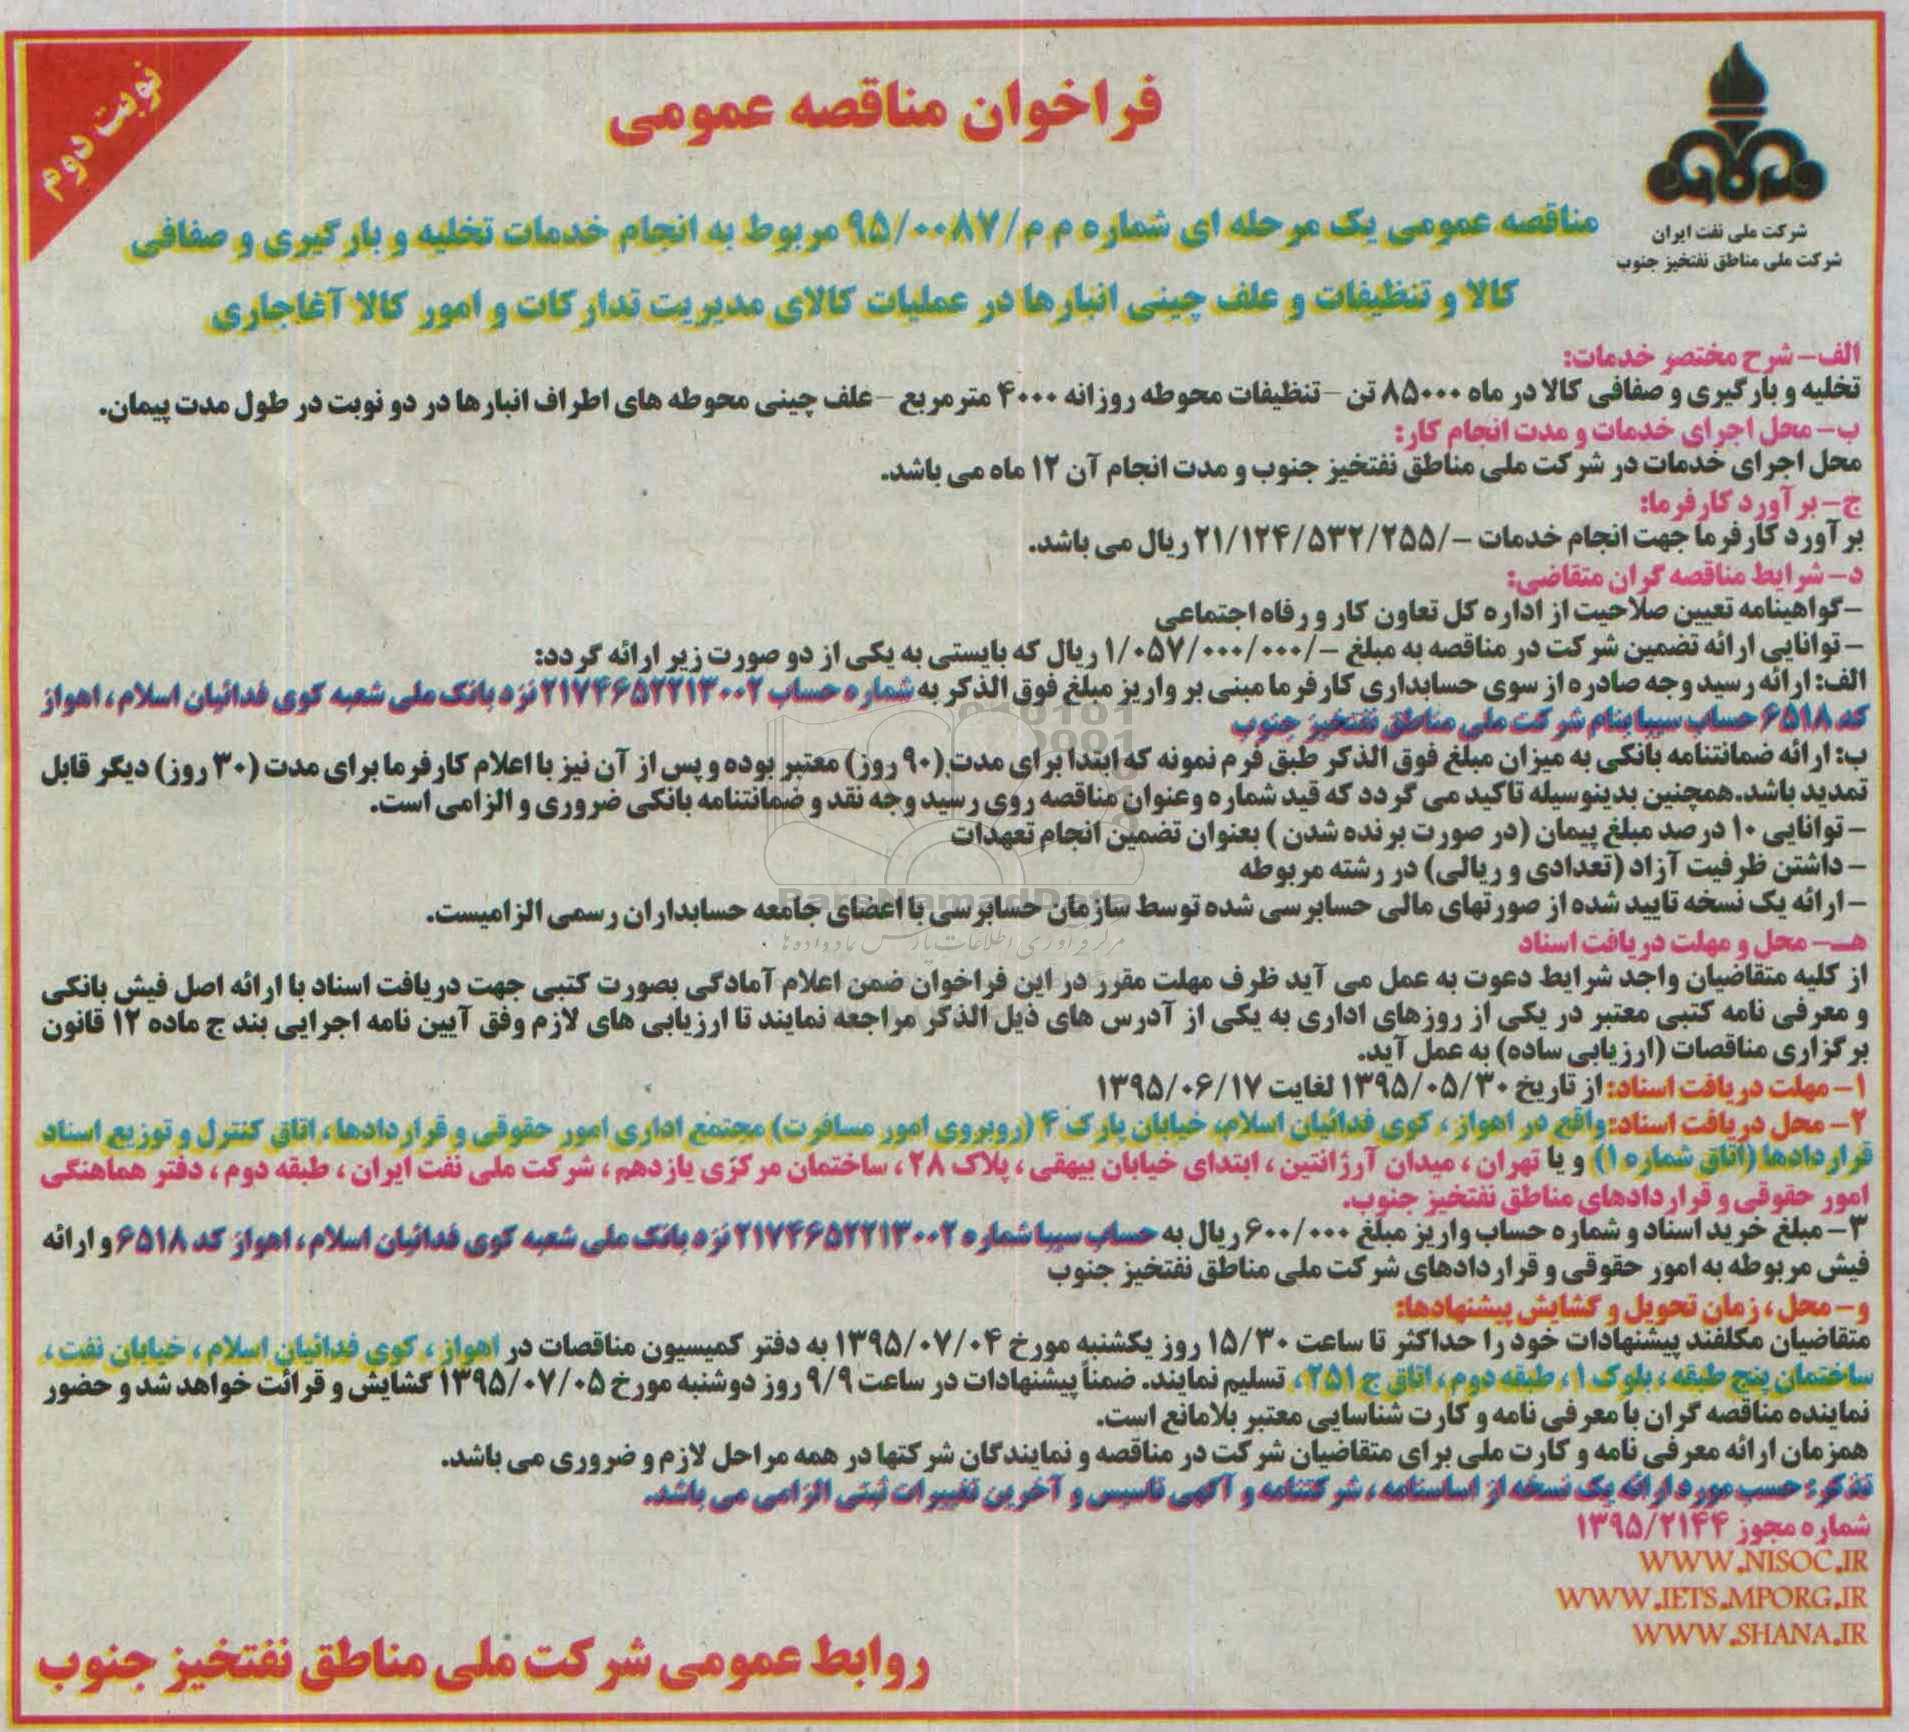 نوبت دوم
فراخوان مناقصه عمومی
شرکت ملی نفت ایران
شرکت ملی مناطق نفتخیز جنوب
مناقصه عمومی یک مرحله ای شماره م م/۹۵/۰۰۸۷ مربوط به انجام خدمات تخلیه و بارگیری و صفافی
کالا و تنظیفات و علف چینی انبارها در عملیات کالای مدیریت تدارکات و امور کالا آغاجاری
الف- شرح مختصر خدمات:
تخلیه و بارگیری و صفافی کالا در ماه ۸۵۰۰۰ تن – تنظیفات محوطه روزانه ۴۰۰۰ مترمربع – علف چینی محوطه های اطراف انبارها در دو نوبت در طول مدت پیمان.
ب- محل اجرای خدمات و مدت انجام کار:
محل اجرای خدمات در شرکت ملی مناطق نفتخیز جنوب و مدت انجام آن ۱۲ ماه می باشد.
ج- برآورد کارفرما:
برآورد کارفرما جهت انجام خدمات -/۲۱/۱۲۴/۵۳۲/۲۵۵ ریال می باشد.
د- شرایط مناقصه گران متقاضی:
-گواهینامه تعیین صلاحیت از اداره کل تعاون کار و رفاه اجتماعی
- توانایی ارائه تضمین شرکت در مناقصه به مبلغ -/۱/۰۵۷/۰۰۰/۰۰۰ ریال که بایستی به یکی از دو صورت زیر ارائه گردد:
الف: ارائه رسید وجه صادره از سوی حسابداری کارفرما مبنی بر واریز مبلغ فوق الذکر به شماره حساب ۲۱۷۴۶۵۲۲۱۳۰۰۲ نزد بانک ملی شعبه کوی فدائیان اسلام، اهواز
کد ۶۵۱۸ حساب سیبا بنام شرکت ملی مناطق نفتخیز جنوب
ب: ارائه ضمانتنامه بانکی به میزان مبلغ فوق الذکر طبق فرم نمونه که ابتدا برای مدت (۹۰ روز) معتبر بوده و پس از آن نیز با اعلام کارفرما برای مدت (۳۰ روز) دیگر قابل
تمدید باشد. همچنین بدینوسیله تاکید می گردد که قید شماره و عنوان مناقصه روی رسید وجه نقد و ضمانتنامه بانکی ضروری و الزامی است.
- توانایی ۱۰ درصد مبلغ پیمان (در صورت برنده شدن ) بعنوان تضمین انجام تعهدات
- داشتن ظرفیت آزاد (تعدادی و ریالی) در رشته مربوطه
- ارائه یک نسخه تایید شده از صورتهای مالی حسابرسی شده توسط سازمان حسابرسی با اعضای جامعه حسابداران رسمی الزامیست.
ParsNamadData
مرکز فرآوری اطلاعات پارس نماد داده ها
هـ- محل و مهلت دریافت اسناد
از کلیه متقاضیان واجد شرایط دعوت به عمل می آید ظرف مهلت مقرر در این فراخوان ضمن اعلام آمادگی بصورت کتبی جهت دریافت اسناد با ارائه اصل فیش بانکی
و معرفی نامه کتبی معتبر در یکی از روزهای اداری به یکی از آدرس های ذیل الذکر مراجعه نمایند تا ارزیابی های لازم وفق آیین نامه اجرایی بند ج ماده ۱۲ قانون
برگزاری مناقصات (ارزیابی ساده) به عمل آید.
۱- مهلت دریافت اسناد: از تاریخ ۱۳۹۵/۰۵/۳۰ لغایت ۱۳۹۵/۰۶/۱۷
۲- محل دریافت اسناد: واقع در اهواز ، کوی فدائیان اسلام، خیابان پارک ۴ (روبروی امور مسافرت) مجتمع اداری امور حقوقی و قراردادها، اتاق کنترل و توزیع اسناد
قراردادها (اتاق شماره ۱) و یا تهران ، میدان آرژانتین ، ابتدای خیابان بیهقی ، پلاک ۲۸ ، ساختمان مرکزی یازدهم ، شرکت ملی نفت ایران ، طبقه دوم ، دفتر هماهنگی
امور حقوقی و قراردادهای مناطق نفتخیز جنوب.
۳- مبلغ خرید اسناد و شماره حساب واریز مبلغ ۶۰۰/۰۰۰ ریال به حساب سیبا شماره ۲۱۷۴۶۵۲۲۱۳۰۰۲ نزد بانک ملی شعبه کوی فدائیان اسلام ، اهواز کد ۶۵۱۸ و ارائه
فیش مربوطه به امور حقوقی و قراردادهای شرکت ملی مناطق نفتخیز جنوب
و- محل ، زمان تحویل و گشایش پیشنهادها:
متقاضیان مکلفند پیشنهادات خود را حداکثر تا ساعت ۱۵/۳۰ روز یکشنبه مورخ ۱۳۹۵/۰۷/۰۴ به دفتر کمیسیون مناقصات در اهواز ، کوی فدائیان اسلام ، خیابان نفت ،
ساختمان پنج طبقه ، بلوک ۱ ، طبقه دوم ، اتاق ج ۲۵۱، تسلیم نمایند. ضمناً پیشنهادات در ساعت ۹/۹ روز دوشنبه مورخ ۱۳۹۵/۰۷/۰۵ گشایش و قرائت خواهد شد و حضور
نماینده مناقصه گران با معرفی نامه و کارت شناسایی معتبر بلامانع است.
همزمان ارائه معرفی نامه و کارت ملی برای متقاضیان شرکت در مناقصه و نمایندگان شرکتها در همه مراحل لازم و ضروری می باشد.
تذکر: حسب مورد ارائه یک نسخه از اساسنامه ، شرکتنامه و آگهی تاسیس و آخرین تغییرات ثبتی الزامی می باشد.
شماره مجوز ۱۳۹۵/۲۱۴۴
WWW.NISOC.IR
WWW.IETS.MPORG.IR
WWW.SHANA.IR
روابط عمومی شرکت ملی مناطق نفتخیز جنوب